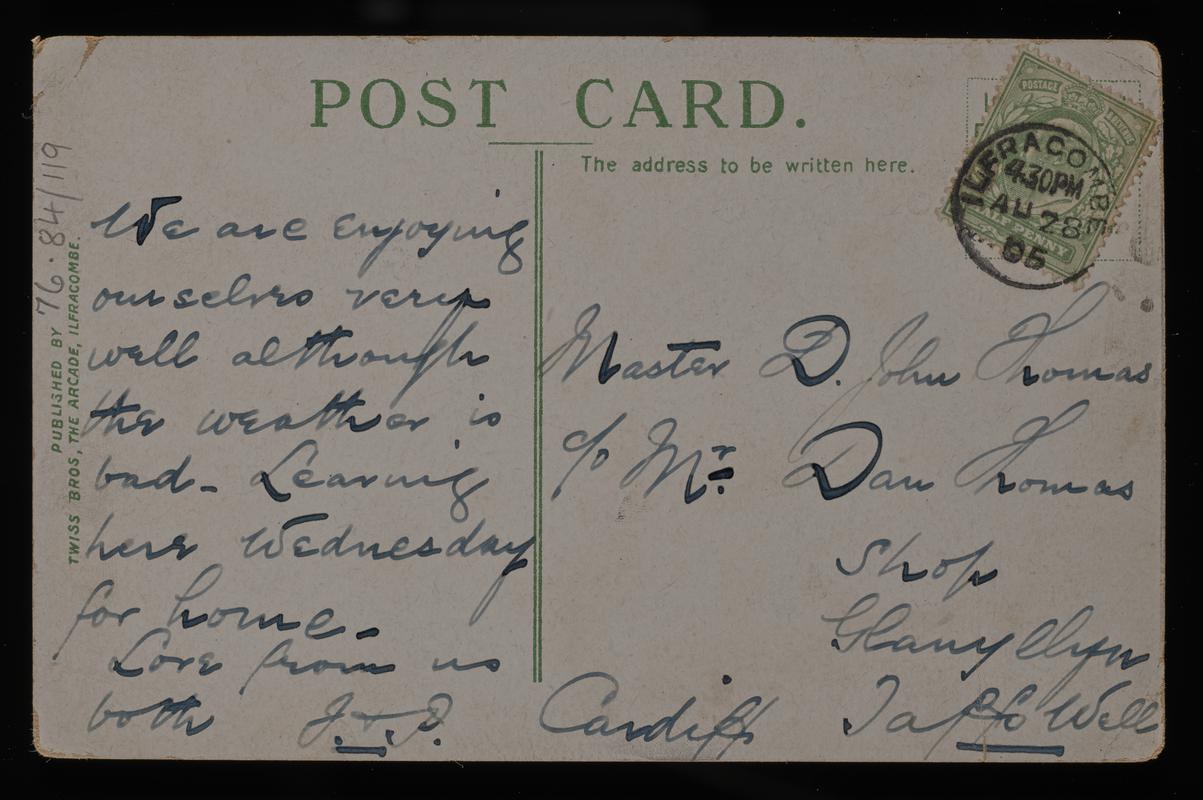 POST CARD.
The address to be written here.
POSTAGE
HALF PENNY
ILFRACOMBE
4.30PM
AU 28
05
76.84/119
PUBLISHED BY
TWISS BROS, THE ARCADE, ILFRACOMBE.
We are enjoying
ourselves very
well although
the weather is
bad - Leaving
here Wednesday
for home -
Love from us
both J. & J.
Master D. John Thomas
c/o Mr. Dan Thomas
Shop
Glanyllyn
Taffs Well
Cardiff